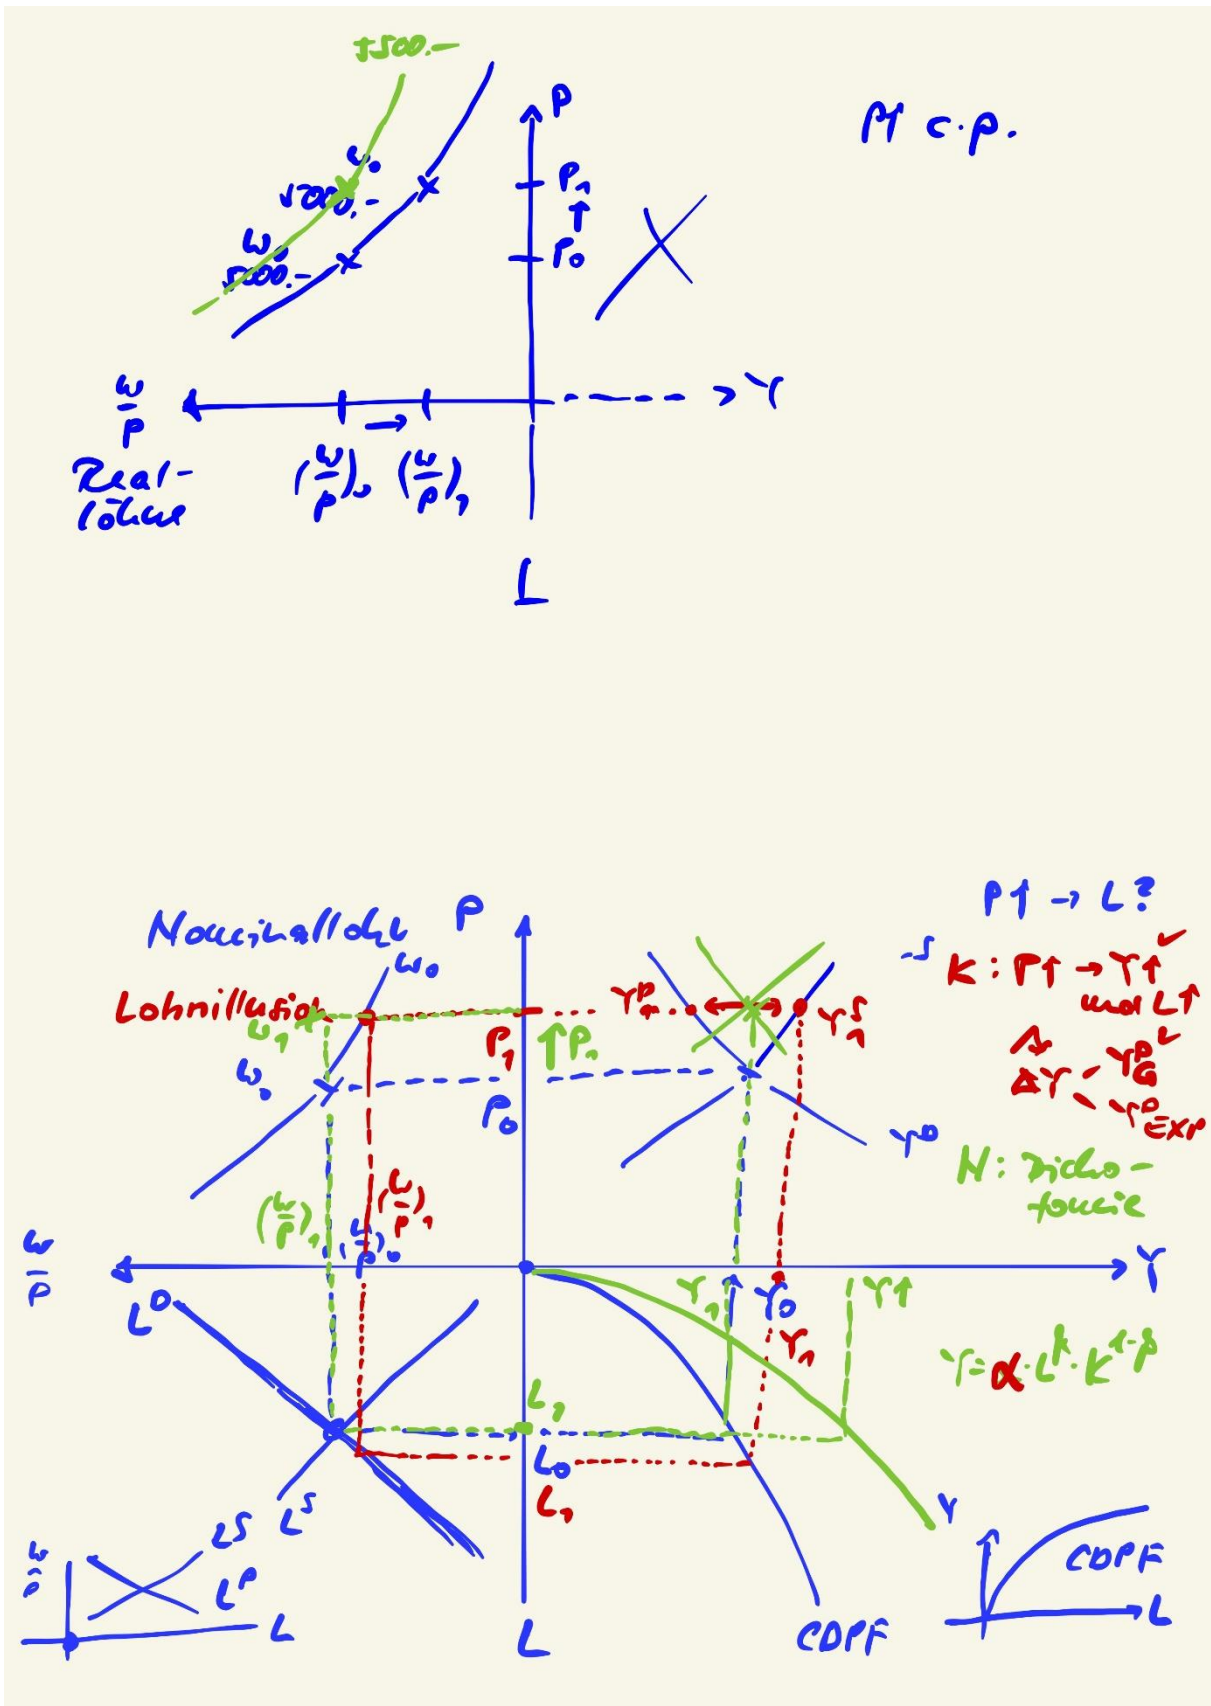 5500.–
P
P↑ c.p.
w₀
5000.–
P₁
↑
w₀
5000.–
P₀
w/p
→ Y
Real-
löhne
(w/p)₀ → (w/p)₁
L
P↑ → L?
Nominallohn
P
w₀
K: P↑ → Y↑ ✓
und L↑
Lohnillusion
w₁
P₁
↑P₁
Y₁ᴰ
Y₁ˢ
w₀
P₀
ΔY
Yᴰ_G ✓
Yᴰ_Exp
Yᴰ
N: Dicho-
tomie
(w/p)₁
(w/p)₁
(w/p)₀
w/p
Y
Lᴰ
Y₁
Y₀
Y↑
Y₁
Y = α · Lᵝ · K¹⁻ᵝ
L₁
L₀
L₁
Lˢ
Y
w/p
Lˢ
Lᴰ
L
L
CDPF
CDPF
L